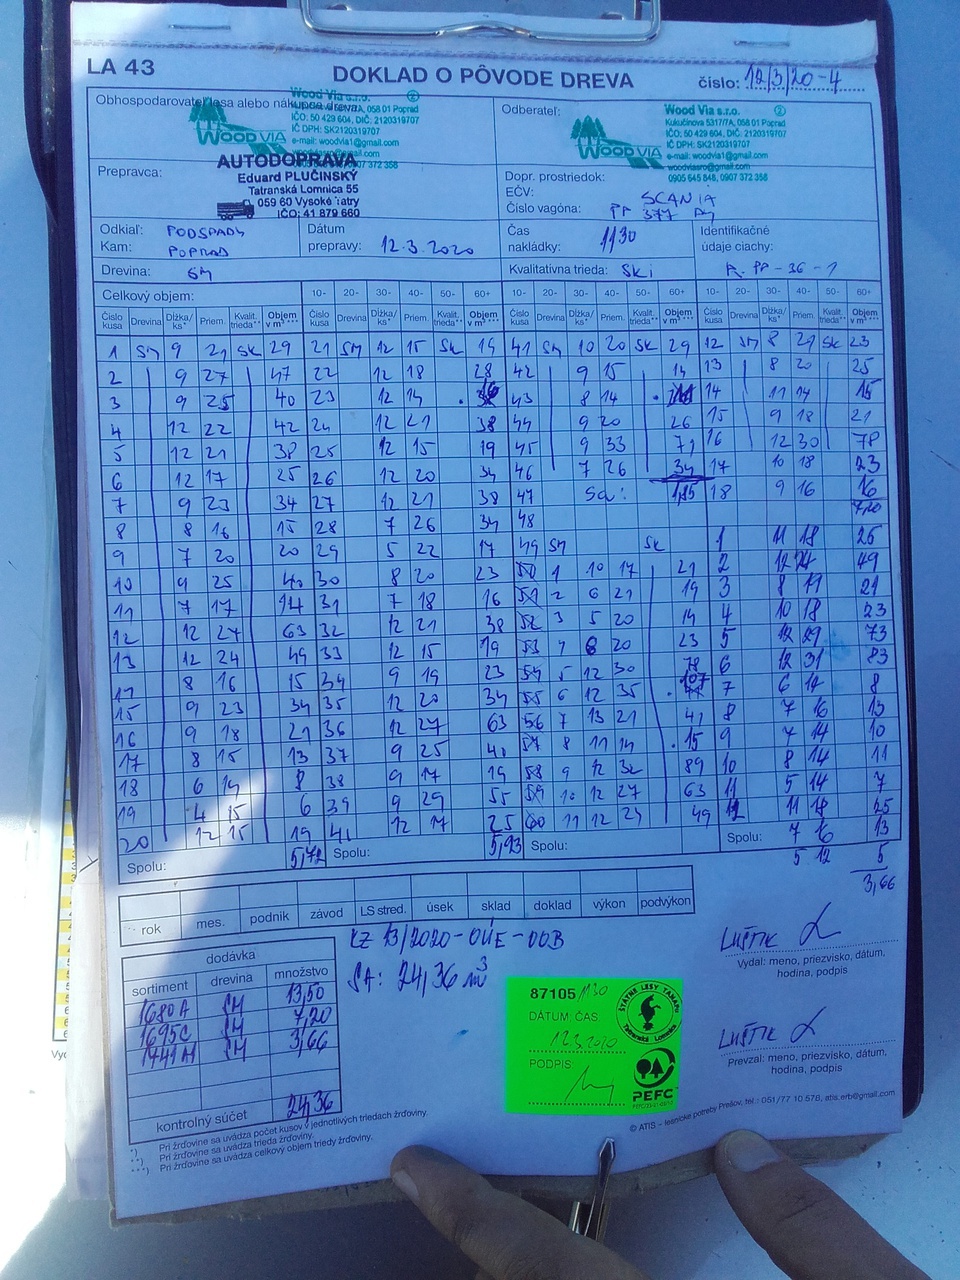 LA 43
DOKLAD O PÔVODE DREVA
číslo: 12/3/20-4
Obhospodarovateľ lesa alebo nákupce dreva:
Wood Via s.r.o. 2
058 01 Poprad
IČO: 50 429 604, DIČ: 2120319707
IČ DPH: SK2120319707
e-mail: woodvia1@gmail.com
WOOD VIA
AUTODOPRAVA
Eduard PLUČINSKÝ
Tatranská Lomnica 55
059 60 Vysoké Tatry
IČO: 41 879 660
Prepravca:
Odberateľ:
Wood Via s.r.o. 2
Kukučínova 5317/7A, 058 01 Poprad
IČO: 50 429 604, DIČ: 2120319707
IČ DPH: SK2120319707
e-mail: woodvia1@gmail.com
woodviasro@gmail.com
0905 645 848, 0907 372 358
WOOD VIA
Dopr. prostriedok: SCANIA
EČV:
Číslo vagóna: PP 377
Odkiaľ: PODSPADY
Kam: POPRAD
Dátum
prepravy: 12.3.2020
Čas
nakládky: 1130
Identifikačné
údaje ciachy:
Drevina: SM
Kvalitatívna trieda: SKi
R. PP-36-1
Celkový objem: 10- 20- 30- 40- 50- 60+ 10- 20- 30- 40- 50- 60+ 10- 20- 30- 40- 50- 60+
Číslo kusa Drevina Dĺžka/ks* Priem. Kvalit. trieda** Objem v m³*** Číslo kusa Drevina Dĺžka/ks* Priem. Kvalit. trieda** Objem v m³*** Číslo kusa Drevina Dĺžka/ks* Priem. Kvalit. trieda** Objem v m³***
1 SM 9 21 SK 29 21 SM 12 15 SK 19 41 SM 10 20 SK 29 12 SM 8 21 SK 23
2 9 27 47 22 12 18 28 42 9 15 14 13 8 20 25
3 9 25 40 23 12 14 43 8 14 14 11 14 15
4 12 22 42 24 12 21 38 44 9 20 26 15 9 18 21
5 12 21 38 25 12 15 19 45 9 33 71 16 12 30 78
6 12 17 25 26 12 20 34 46 7 26 34 17 10 18 23
7 9 23 34 27 12 21 38 47 Sa: 1,85 18 9 16 16
8 8 16 15 28 7 26 34 48 7,20
9 7 20 20 29 5 22 17 49 SM SK 1 11 18 26
10 9 25 40 30 8 20 23 50 1 10 17 21 2 12 24 49
11 7 17 14 31 7 18 16 51 2 6 21 19 3 8 19 21
12 12 27 63 32 12 21 38 52 3 5 20 14 4 10 18 23
13 12 24 49 33 12 15 19 53 4 8 20 23 5 12 29 73
14 8 16 15 34 9 19 23 54 5 12 30 78 6 12 31 83
15 9 23 34 35 12 20 34 55 6 12 35 107 7 6 14 8
16 9 18 21 36 12 27 63 56 7 13 21 41 8 7 16 13
17 8 15 13 37 9 25 40 57 8 11 14 15 9 7 14 10
18 6 14 8 38 9 17 19 58 9 12 32 89 10 8 14 11
19 4 15 6 39 9 29 55 59 10 12 27 63 11 5 14 7
20 12 15 19 41 12 17 25 60 11 12 24 49 12 11 18 25
Spolu: 5,72 Spolu: 5,93 Spolu: Spolu: 7 16 13
5 12 5
3,66
rok mes. podnik závod LS stred. úsek sklad doklad výkon podvýkon
KZ 13/2020-OUE-OOB
SA: 24,36 m³
dodávka
sortiment drevina množstvo
1680A SM 13,50
1695C SM 7,20
1441M SM 3,66
kontrolný súčet 24,36
87105 1130
DÁTUM, ČAS.
12.3.2020
PODPIS
ŠTÁTNE LESY TANAPu
Tatranská Lomnica
PEFC
LUŠTIK
Vydal: meno, priezvisko, dátum,
hodina, podpis
LUŠTIK
Prevzal: meno, priezvisko, dátum,
hodina, podpis
*) Pri žrďovine sa uvádza počet kusov v jednotlivých triedach žrďoviny.
**) Pri žrďovine sa uvádza trieda žrďoviny.
***) Pri žrďovine sa uvádza celkový objem triedy žrďoviny.
© ATIS – lesnícke potreby Prešov, tel.: 051/77 10 578, atis.erb@gmail.com